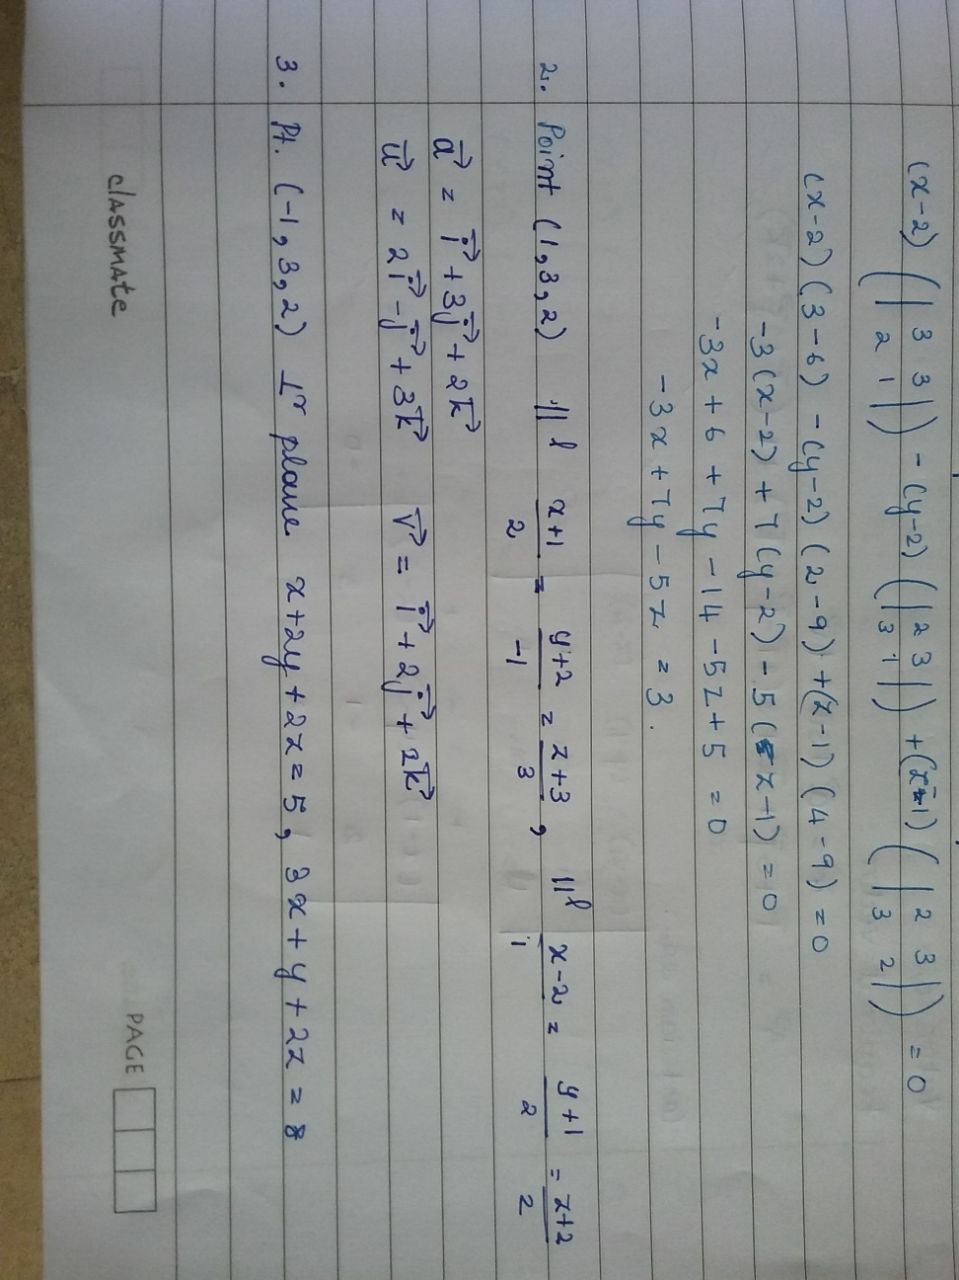 (x-2) (|3 3| |2 1|) - (y-2) (|2 3| |3 1|) + (z-1) (|2 3| |3 2|) = 0
(x-2) (3-6) - (y-2) (2-9) + (z-1) (4-9) = 0
-3(x-2) + 7(y-2) - 5(z-1) = 0
-3x + 6 + 7y - 14 - 5z + 5 = 0
-3x + 7y - 5z = 3.
2. Point (1,3,2) ||l x+1/2 = y+2/-1 = z+3/3, ||l x-2/1 = y+1/2 = z+2/2
a⃗ = i⃗ + 3j⃗ + 2k⃗
u⃗ = 2i⃗ - j⃗ + 3k⃗ v⃗ = i⃗ + 2j⃗ + 2k⃗
3. Pt. (-1,3,2) ⊥r plane x+2y+2z=5, 3x+y+2z=8
classmate PAGE